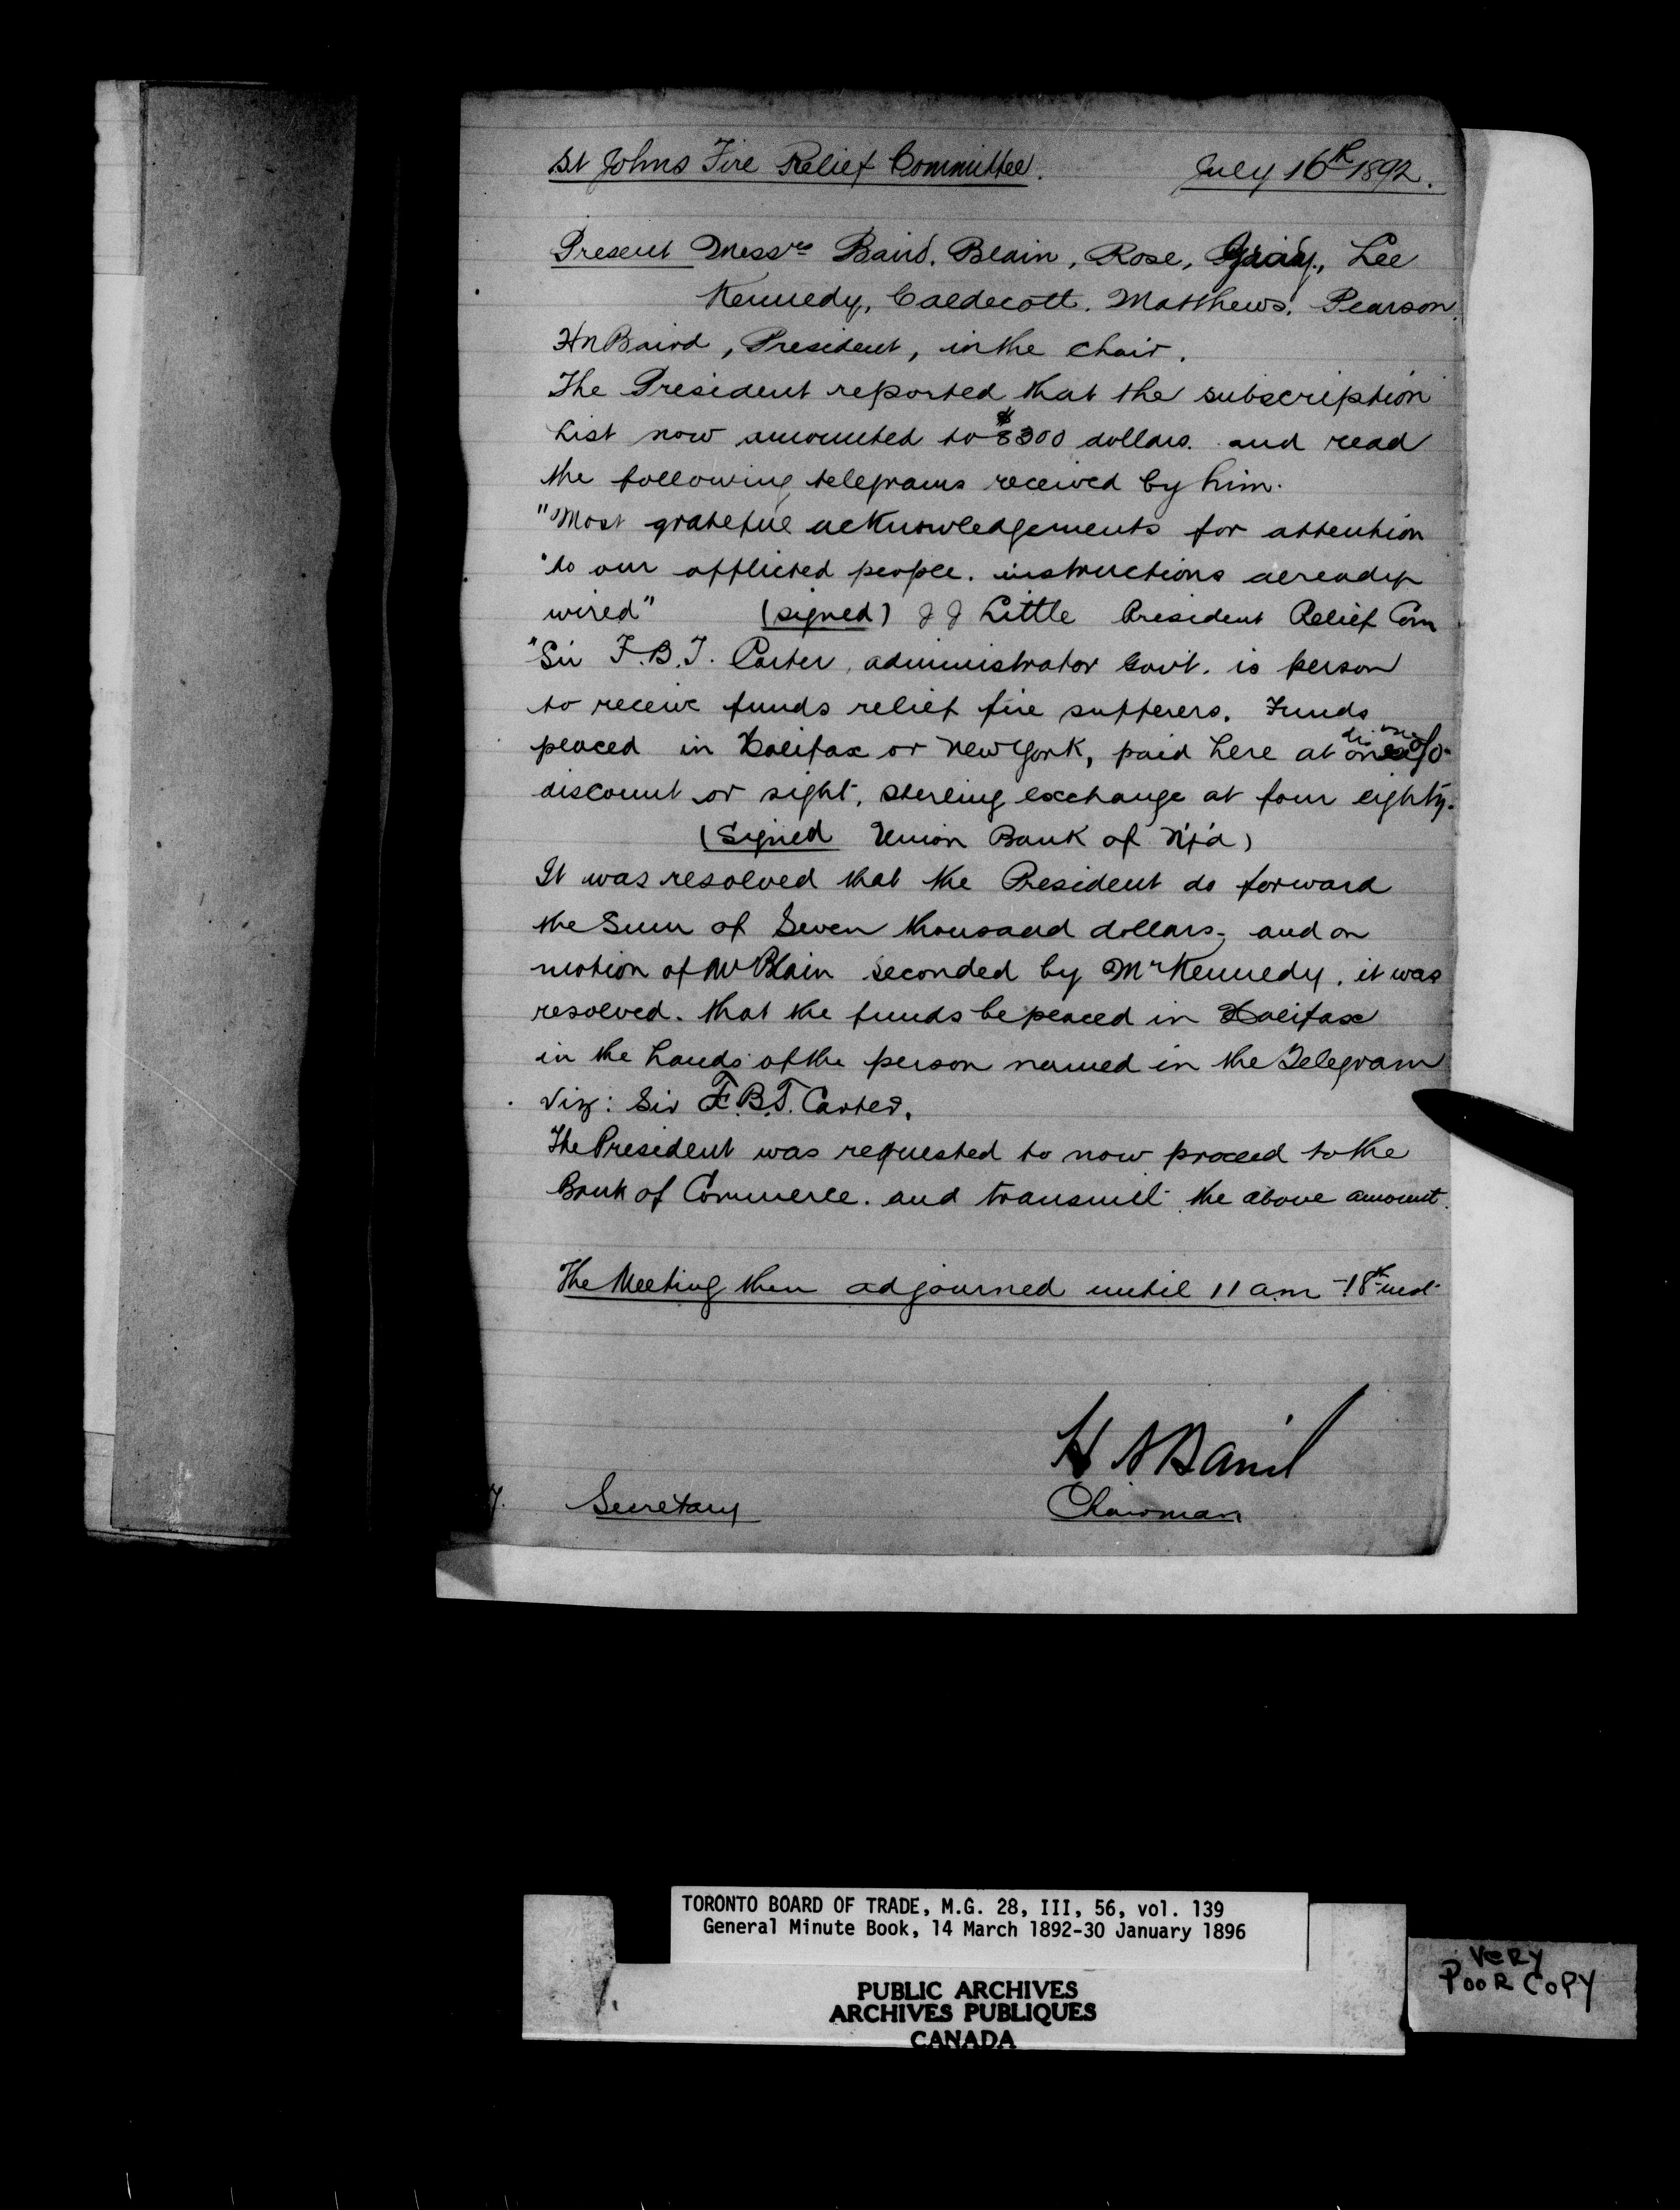 St Johns Fire Relief Committee. July 16th 1892.
Present Messrs Baird, Blain, Rose, Lee
Kennedy, Caldecott, Matthews, Pearson.
HNBaird, President, in the Chair.
The President reported that the subscription
List now amounted to $8300 dollars. and read
the following telegrams received by him.
"Most grateful acknowledgements for attention
"to our afflicted people. instructions already
wired" (signed) J J Little President Relief Com
"Sir F.B.T. Carter, administrator Govt. is person
to receive funds relief fire sufferers. Funds
placed in Halifax or New York, paid here at
discount or sight, sterling exchange at four eighty.
(Signed Union Bank of Nfd)
It was resolved that the President do forward
the Sum of Seven thousand dollars, and on
motion of Mr Blain seconded by Mr Kennedy, it was
resolved. that the funds be placed in Halifax
in the hands of the person named in the Telegram
Viz: Sir F.B.T. Carter.
The President was requested to now proceed to the
Bank of Commerce. and transmit the above amount.
The Meeting then adjourned until 11 am 18th inst
H N Baird
Secretary Chairman
TORONTO BOARD OF TRADE, M.G. 28, III, 56, vol. 139
General Minute Book, 14 March 1892-30 January 1896
VERY
POOR COPY
PUBLIC ARCHIVES
ARCHIVES PUBLIQUES
CANADA